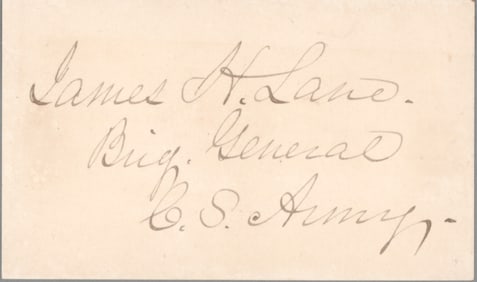 James H. Lane.
Brig. General
C. S. Army,-